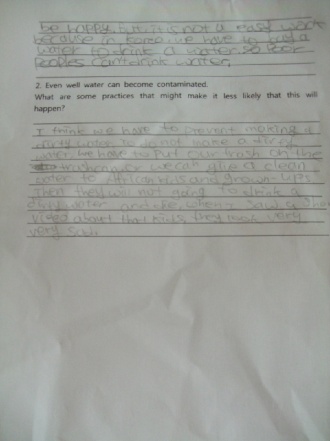 be happy. but it is not a easy work
because in Korea we have to find a
water to drink a water. So Poor
Peoples can't drink water.
2. Even well water can become contaminated.
What are some practices that might make it less likely that this will
happen?
I think we have to prevent making a
dirty water to do not make a dirty
water. We have to Put our trash in the
trash can, or we can give a clean
water to African kids and grown-ups
then they will not going to drink a
dirty water and die. when I saw a
video about that kids, they were very
very sad.